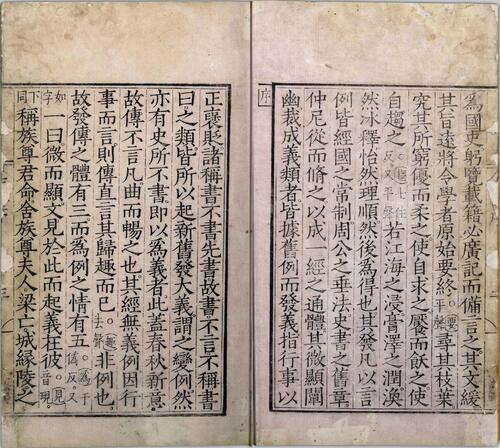 序
爲國史躬覽載籍必廣記而備言之其文緩
其旨遠將令學者原始要終。要平聲尋其枝葉
究其所窮優而柔之使自求之饜而飫之使
自趨之。趨七住反又平聲若江海之浸膏澤之潤渙
然冰釋怡然理順然後爲得也其發凡以言
例皆經國之常制周公之垂法史書之舊章
仲尼從而脩之以成一經之通體其微顯闡
幽裁成義類者皆據舊例而發義指行事以
正褒貶諸稱書不書先書故書不言不稱書
曰之類皆所以起新舊發大義謂之變例然
亦有史所不書即以爲義者此蓋春秋新意
故傳不言凡曲而暢之也其經無義例因行
事而言則傳直言其歸趣而已。趣去聲非例也
故發傳之體有三而爲例之情有五。爲于僞反又
如字一曰微而顯文見於此而起義在彼。見音現
下同稱族尊君命舍族尊夫人梁亡城緣陵之